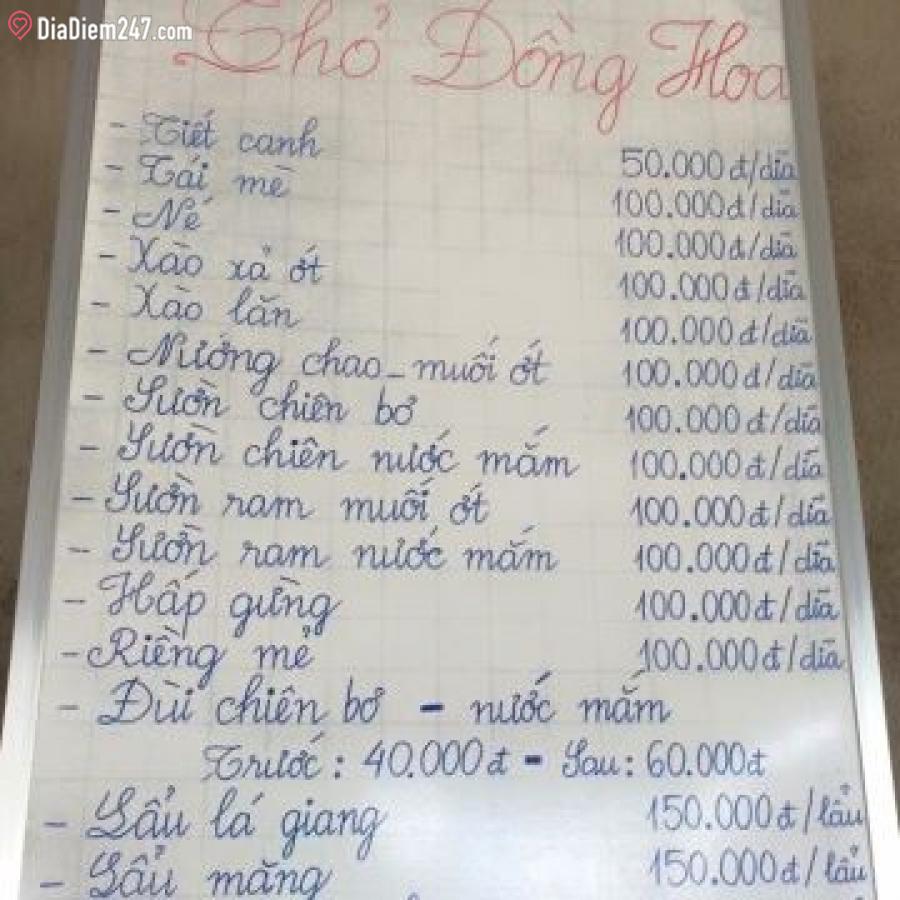 DiaDiem247.com
Thỏ Đồng Hoa
- Tiết canh 50.000đ/dĩa
- Tái mè 100.000đ/dĩa
- Né 100.000đ/dĩa
- Xào xả ớt 100.000đ/dĩa
- Xào lăn 100.000đ/dĩa
- Nướng chao - muối ớt 100.000đ/dĩa
- Sườn chiên bơ 100.000đ/dĩa
- Sườn chiên nước mắm 100.000đ/dĩa
- Sườn ram muối ớt 100.000đ/dĩa
- Sườn ram nước mắm 100.000đ/dĩa
- Hấp gừng 100.000đ/dĩa
- Riềng mẻ 100.000đ/dĩa
- Đùi chiên bơ - nước mắm
Trước: 40.000đ - Sau: 60.000đ
- Lẩu lá giang 150.000đ/lẩu
- Lẩu măng 150.000đ/lẩu